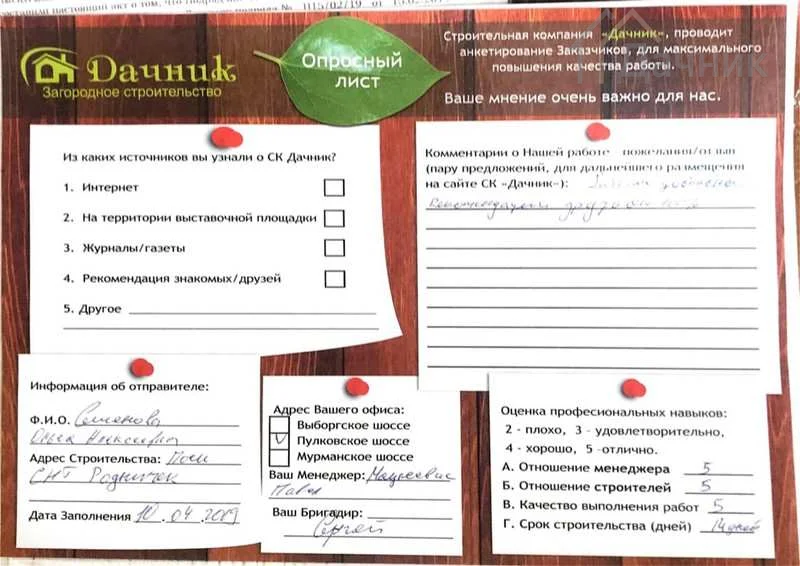 Договора подряда № П15/02/19 от
Дачник
Загородное строительство
Опросный
лист
Строительная компания «Дачник», проводит
анкетирование Заказчиков, для максимального
повышения качества работы.
Ваше мнение очень важно для нас.
Из каких источников вы узнали о СК Дачник?
1. Интернет
2. На территории выставочной площадки
3. Журналы/газеты
4. Рекомендация знакомых/друзей
5. Другое
Комментарии о Нашей работе пожелания/отзыв
(пару предложений, для дальнейшего размещения
на сайте СК «Дачник»):
друзьям 100%
Информация об отправителе:
Ф.И.О. Семенова
Ольга Алексеевна
Адрес Строительства:
СНТ Родничок
Дата Заполнения 10.04.2019
Адрес Вашего офиса:
Выборгское шоссе
Пулковское шоссе
Мурманское шоссе
Ваш Менеджер: Мацкевич
Павел
Ваш Бригадир:
Сергей
Оценка професиональных навыков:
2 - плохо, 3 - удовлетворительно,
4 - хорошо, 5 -отлично.
А. Отношение менеджера 5
Б. Отношение строителей 5
В. Качество выполнения работ 5
Г. Срок строительства (дней) 14 дней